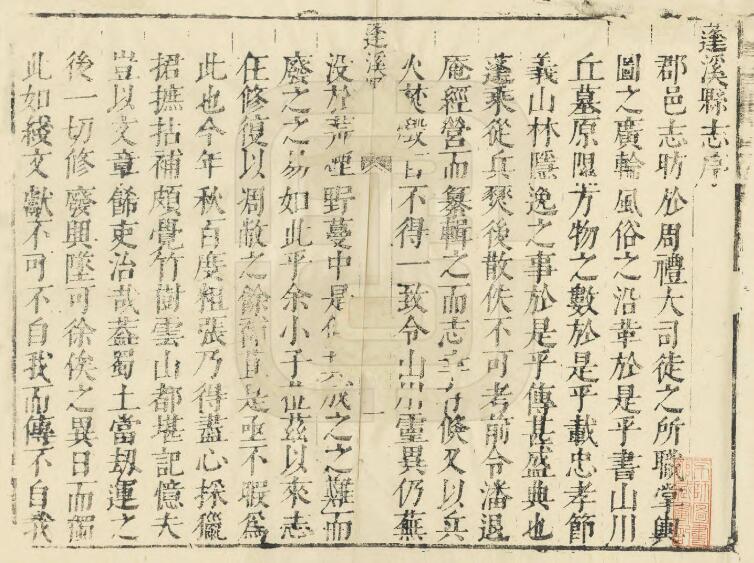 蓬溪縣志序
郡邑志昉於周禮大司徒之所職掌輿
圖之廣輪風俗之沿革於是乎書山川
丘墓原隰方物之數於是乎載忠孝節
義山林隱逸之事於是乎傳甚盛典也
蓬乘從兵燹後散佚不可考前令潘退
庵經營而纂輯之而志幸有倏又以兵
火焚燬百不得一致令山川靈異仍蕪
蓬溪
一
沒於荒煙野蔓中是何成之之難而
廢之之易如此乎余小子蒞茲以來志
在修復以凋敝之餘是亟不暇爲
此也今年秋百度粗張乃得盡心採獵
捃摭拈補頗覺竹樹雲山都堪記憶夫
豈以文章飾吏治哉蓋蜀土當劫運之
後一切修廢興墜可徐俟之異日而獨
此如綫文獻不可不自我而傳不自我